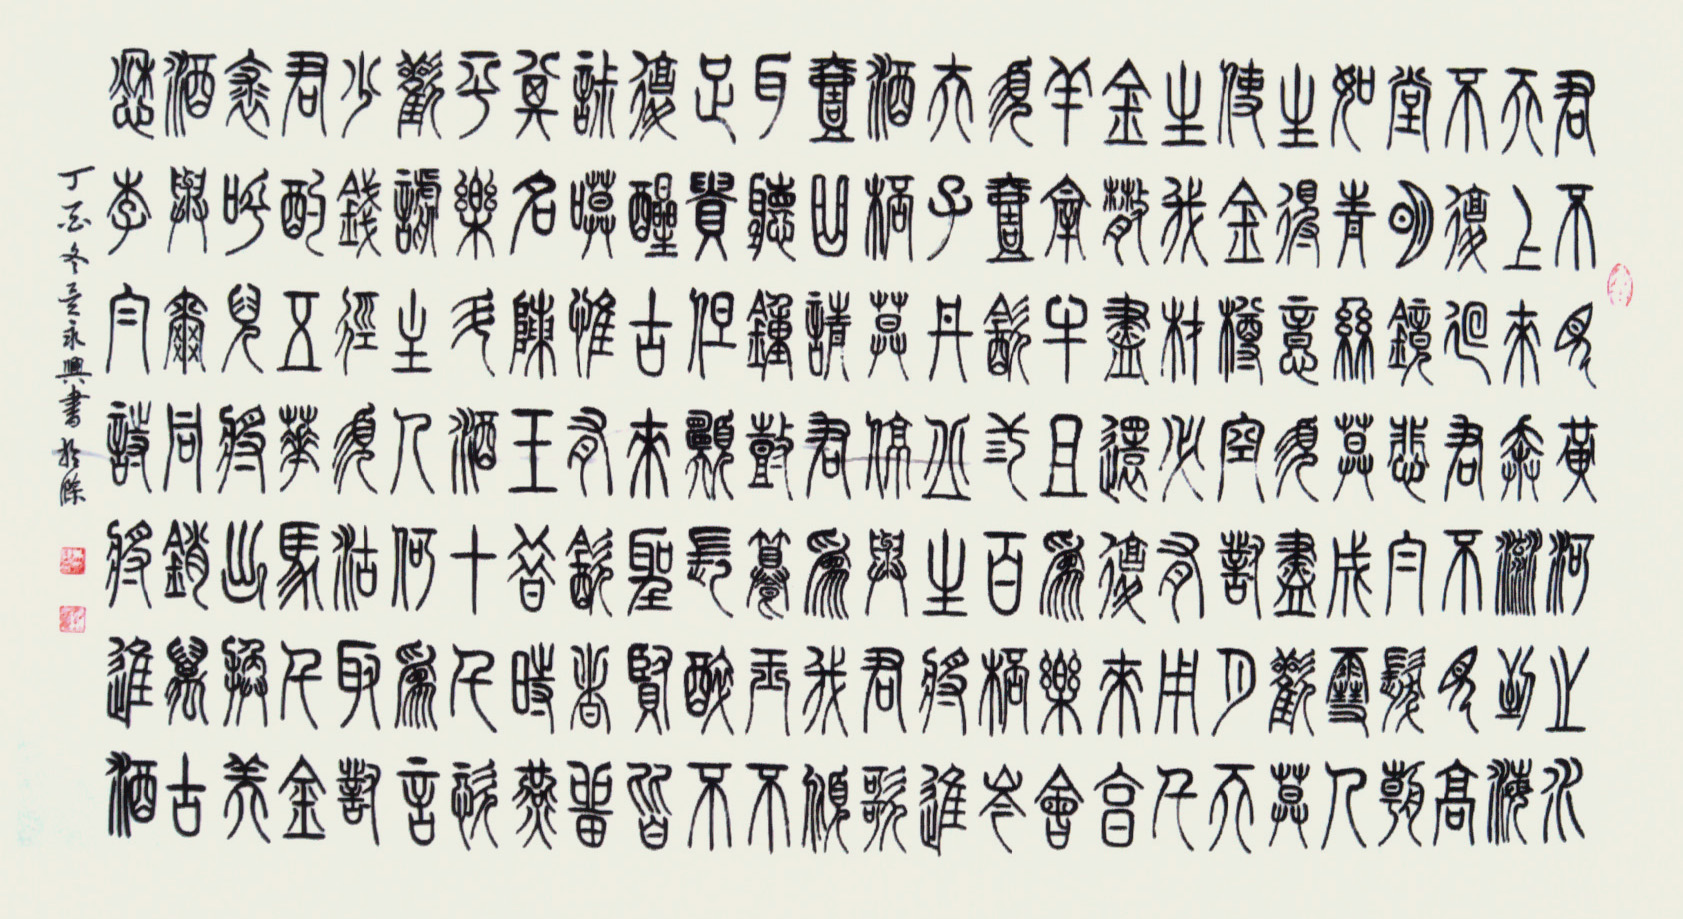 君不見黃河之水
天上來奔流到海
不復迴君不見高
堂明鏡悲白髮朝
如青絲莫成雪人
生得意須盡歡莫
使金樽空對月天
生我材必有用千
金散盡還復來亯
羊宰牛且為樂會
須壹飲三百杯岑
夫子丹丘生將進
酒杯莫停與君歌
壹曲請君為我傾
耳聽鐘鼓饌玉不
足貴但願長醉不
復醒古來聖賢皆
寂寞惟有飲者留
其名陳王昔時燕
平樂斗酒十千恣
歡謔主人何為言
少錢徑須沽取對
君酌五華馬千金
裘呼兒將出換美
酒與爾同銷萬古
愁李白詩將進酒
丁酉冬吳永興書於滁